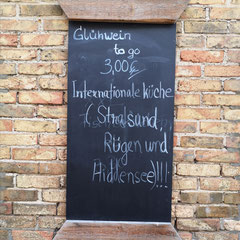 Glühwein
to go
3,00€
Internationale küche
( Stralsund,
Rügen und
Hiddensee)!!!